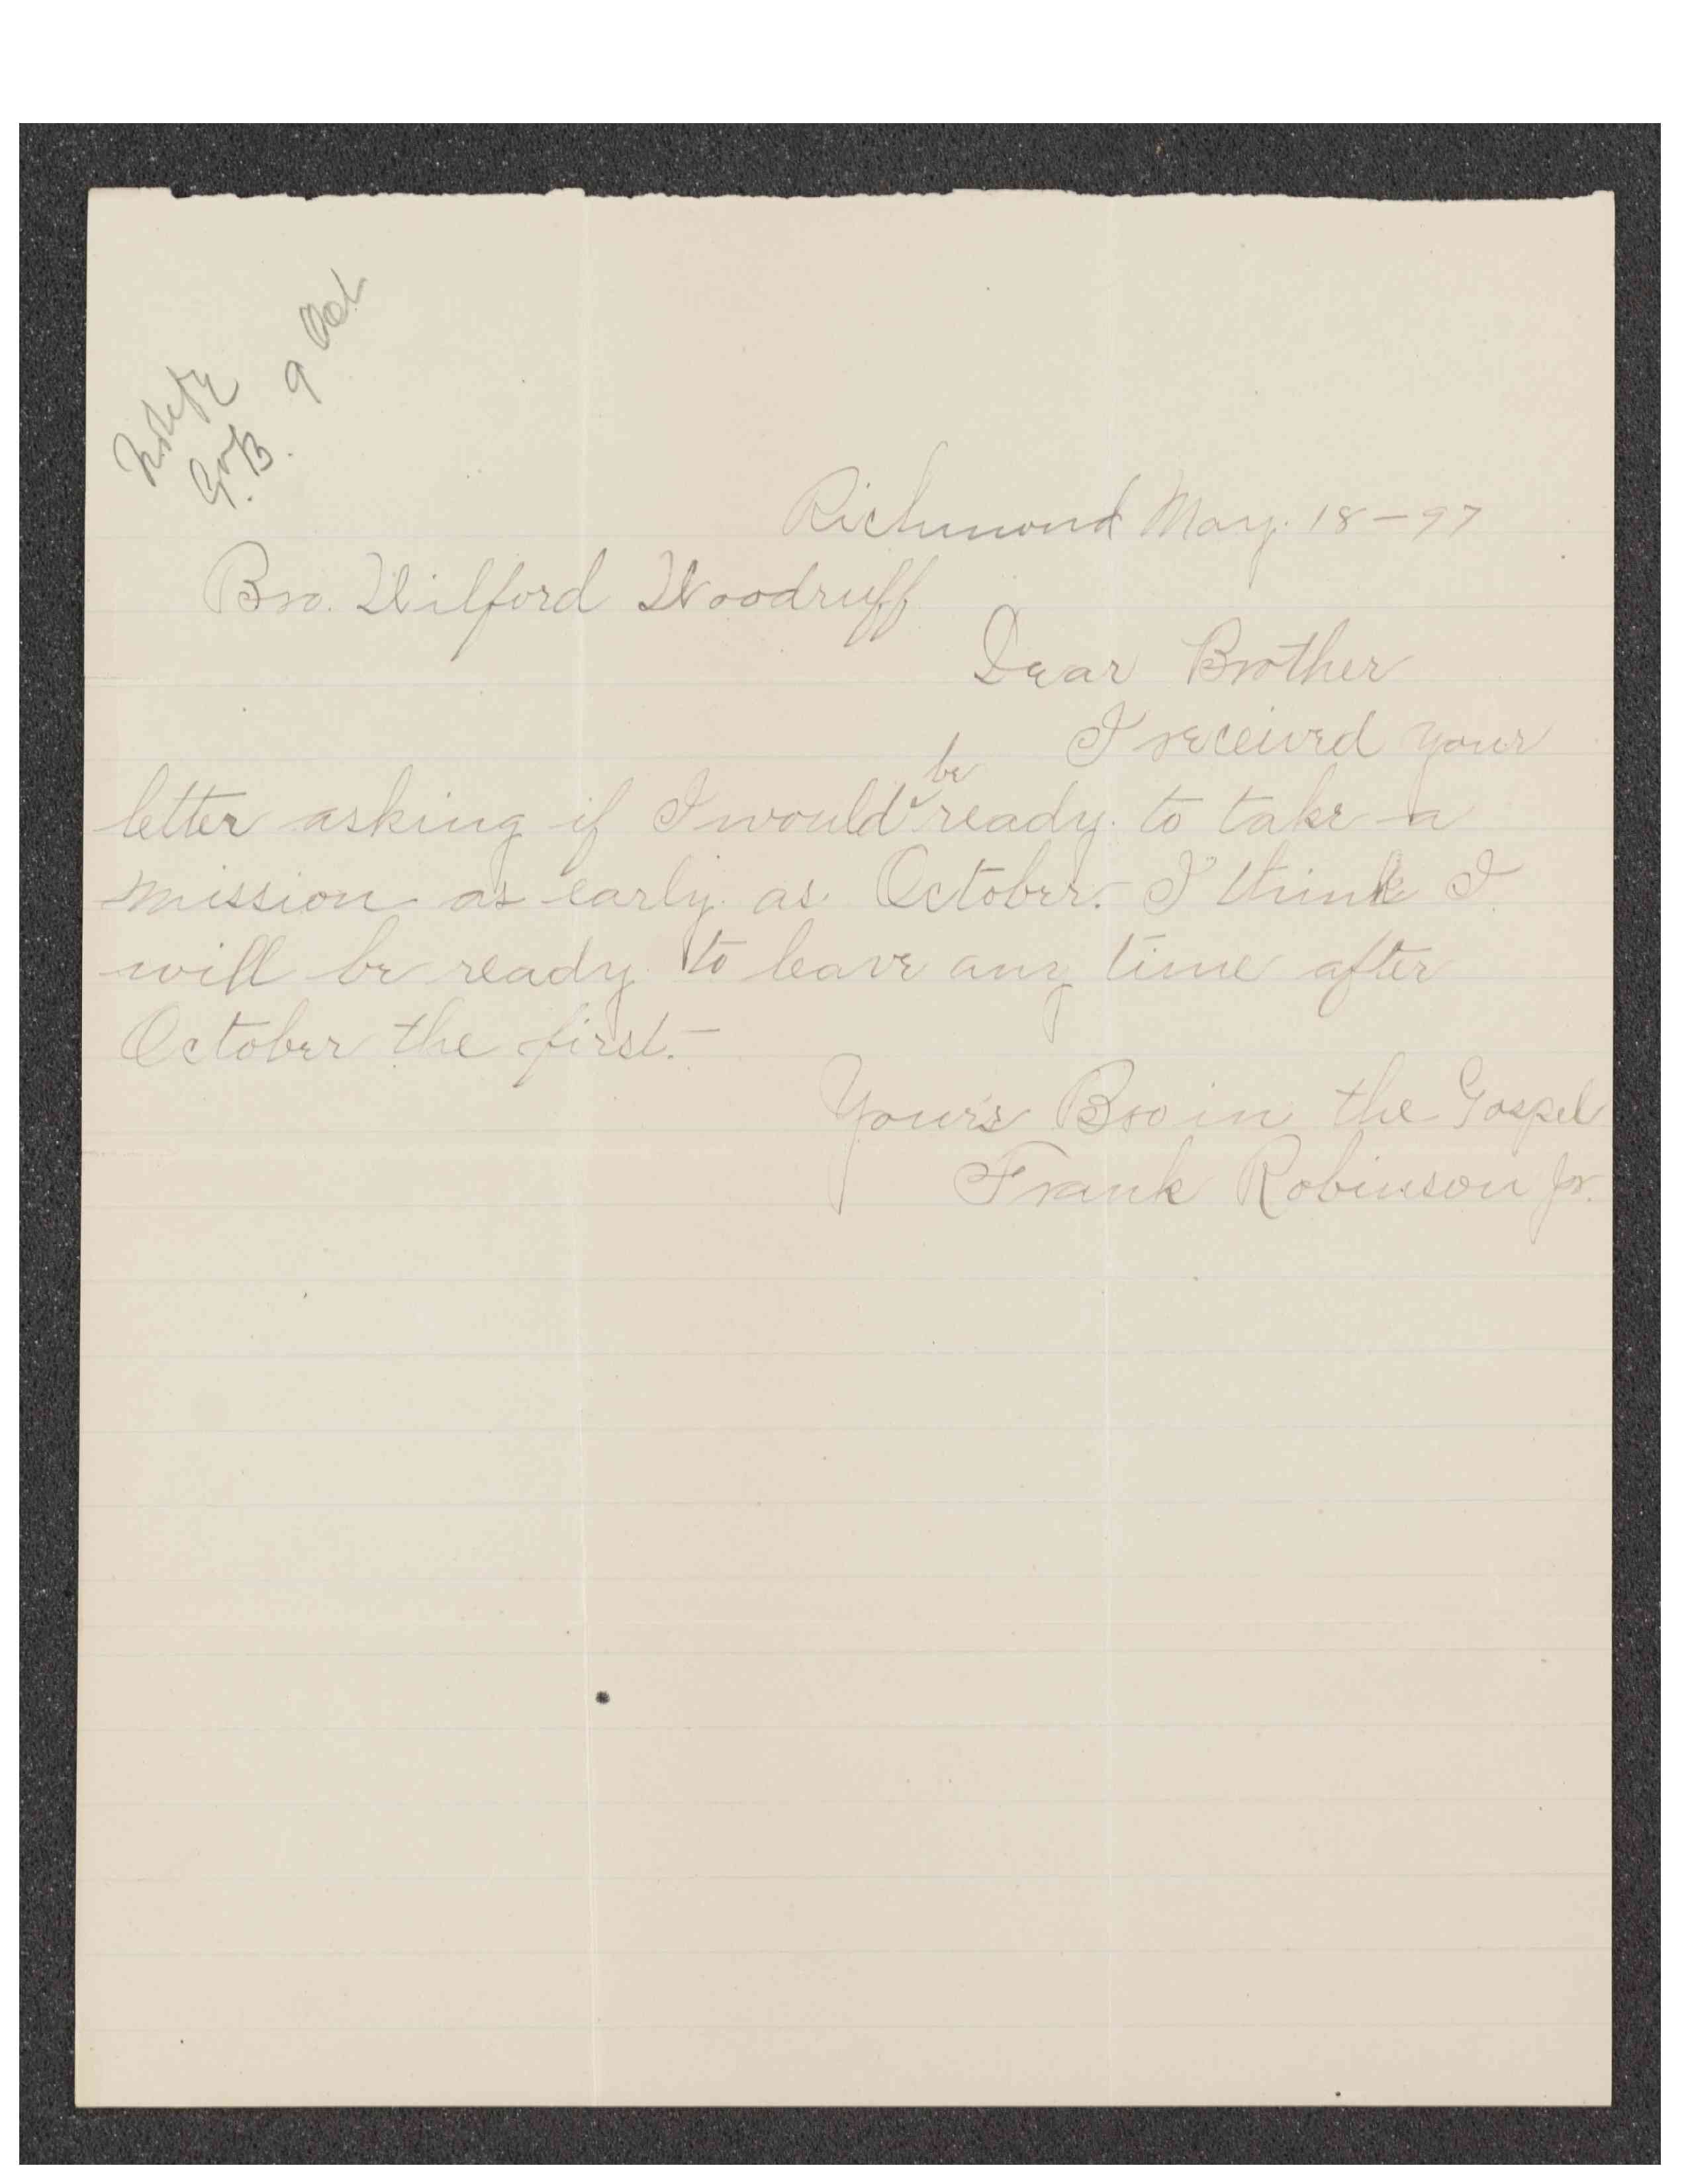 Notify
G.B. 9 Oct
Richmond May. 18-97
Bro. Wilford Woodruff
Dear Brother
I received your
be
letter asking if I would ready to take a
mission as early as October. I think I
will be ready to leave any time after
October the first.-
Your's Bro in the Gospel
Frank Robinson Jr.